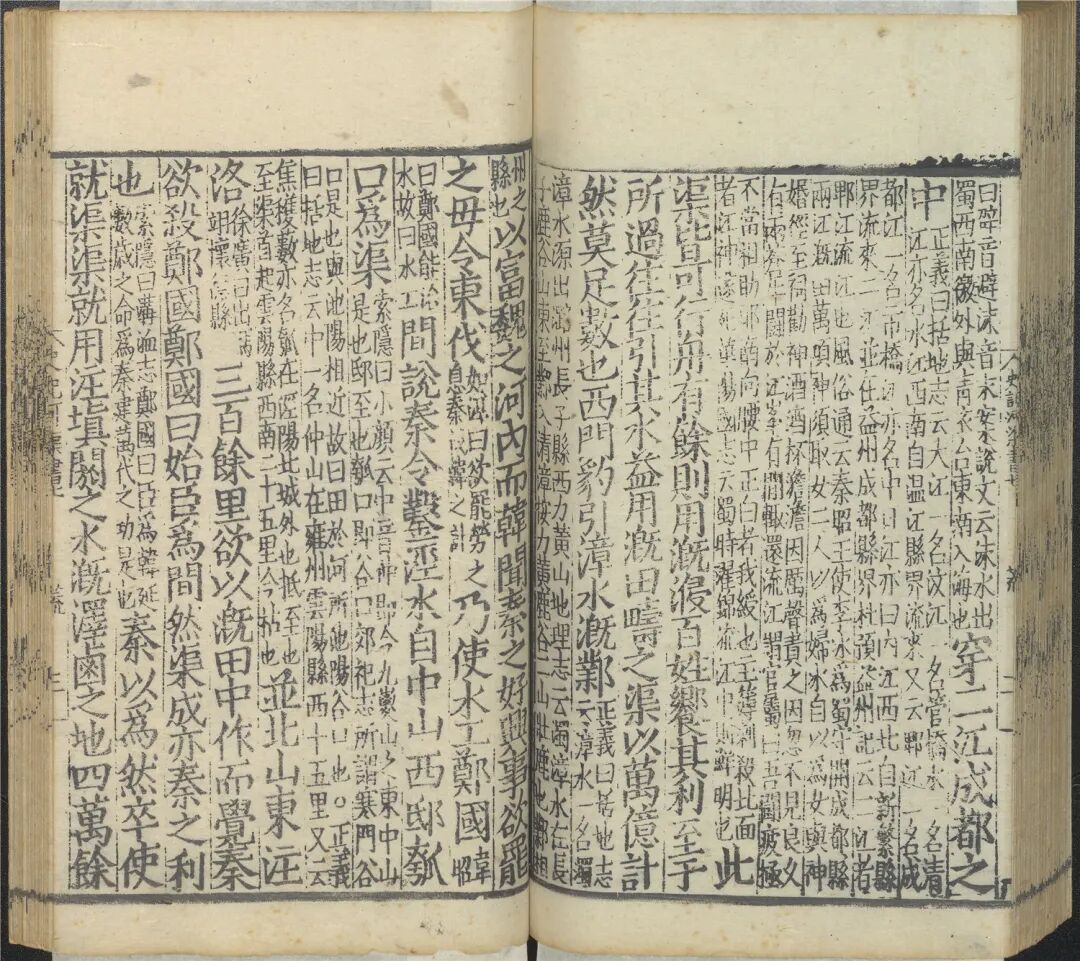 曰辟音避沫音末案說文云沫水出
蜀西南徼外與青衣合東南入海也
穿二江成都之
中
正義曰括地志云大江一名汶江一名管橋水一名清
江亦名水江西南自温江縣界流來又云郫江一名成
都江一名市橋江亦名中日江亦曰内江西北自新繁縣
界流來二江並在益州成都縣界杜預益州記云二江者
郫江流江也風俗通云秦昭王使李冰爲蜀守開成都縣
兩江溉田萬頃神須取女二人以爲婦冰自以爲女與神
婚徑至祠勸神酒酒杯澹澹因厲聲責之因忽不見良久
有兩蒼牛鬭於江岸有間輒還流江謂官屬曰吾鬭疲極
不當相助耶南向腰中正白者我綬也主簿刺殺北面
者江神遂死華陽國志云蜀時濯錦流江中則鮮明也
此
渠皆可行舟有餘則用溉浸百姓饗其利至于
所過往往引其水益用溉田疇之渠以萬億計
然莫足數也西門豹引漳水溉鄴
正義曰括地志
云漳水一名濁
漳水源出潞州長子縣西力黃山地理志云濁漳水在長
子鹿谷山東至鄴入清漳按力黃鹿谷二山北鹿也鄴相
州之
縣也
以富魏之河内而韓聞秦之好興事欲罷
之毋令東伐
如淳曰欲罷勞之
息秦伐韓之計
乃使水工鄭國
韋
昭
曰鄭國能治
水故曰水工
間說秦令鑿涇水自中山西邸瓠
口爲渠
索隱曰小顏云中音仲即今九嵕山之東中山
是也邸至也瓠口即谷口郊祀志所謂寒門谷
口是也與池陽相近故曰田於何所池陽谷口也○正義
曰括地志云中一名仲山在雍州雲陽縣西十五里又云
焦穫藪亦名瓠在涇陽北城外也抵至也
至渠首起雲陽縣西南二十五里今枯也
並北山東注
洛
徐廣曰出馮
翊懷德縣
三百餘里欲以溉田中作而覺秦
欲殺鄭國鄭國曰始臣爲間然渠成亦秦之利
也
索隱曰溝洫志鄭國曰臣爲韓延
數歲之命爲秦建萬代之功是也
秦以爲然卒使
就渠渠就用注填閼之水溉澤鹵之地四萬餘